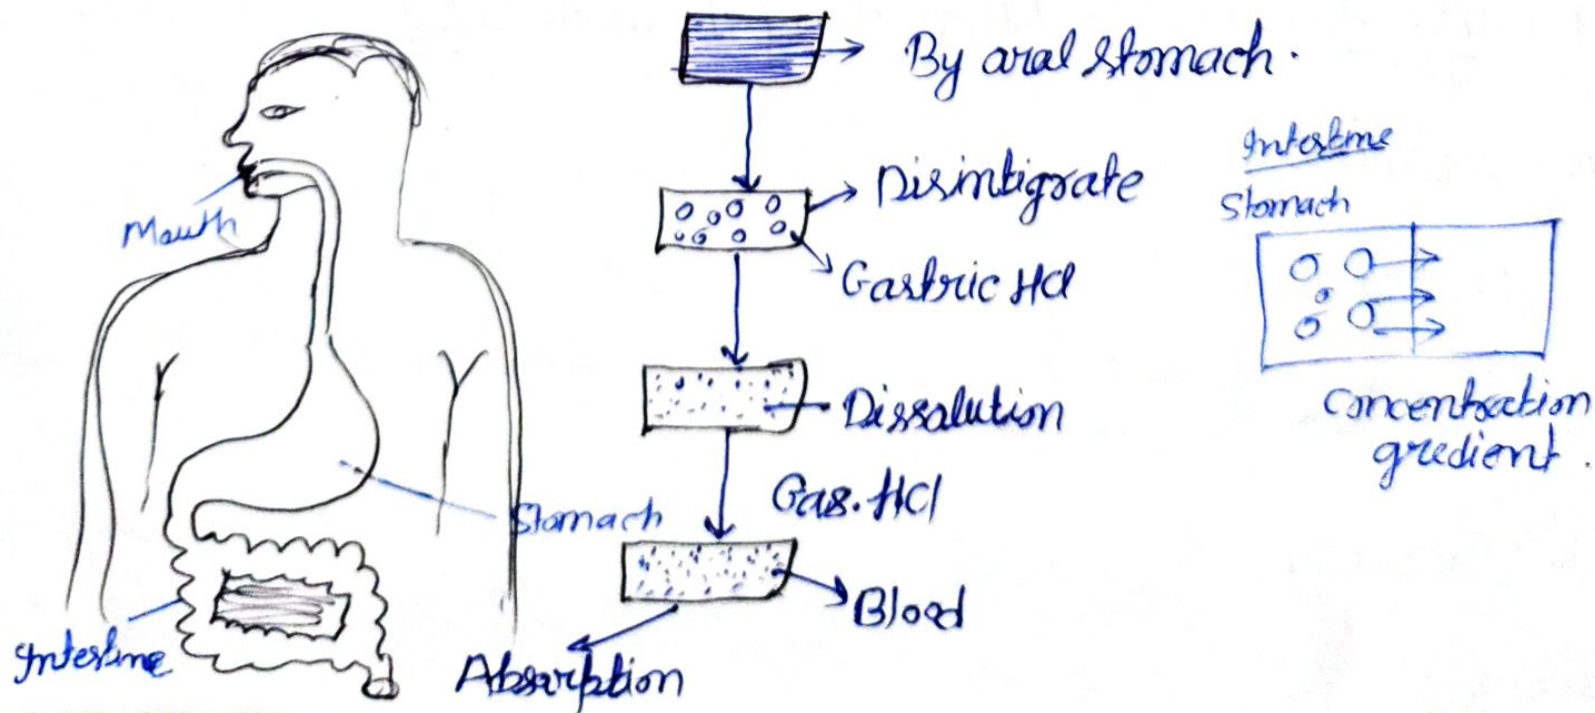 Mouth
Stomach
Intestine
By oral stomach.
Disintigrate
Gastric HCl
Dissalution
Gas. HCl
Blood
Absorption
Intestine
Stomach
Concentration
gredient.